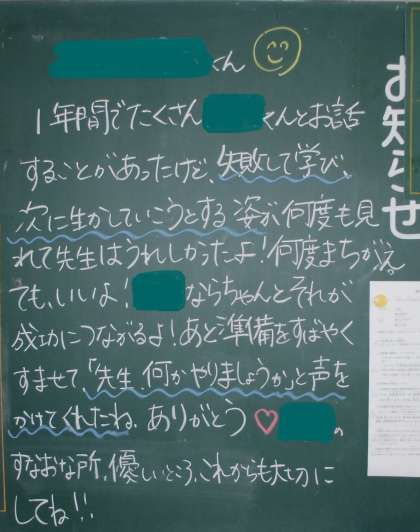 くん
1年間でたくさん くんとお話
することがあったけど、失敗して学び、
次に生かしていこうとする姿が何度も見
れて先生はうれしかったよ!何度まちがえ
ても、いいよ! ならちゃんとそれが
成功につながるよ!あと準備をすばやく
すませて、「先生、何かやりましょうか」と声を
かけてくれたね、ありがとう♡ の
すなおな所、優しいところ、これからも大切に
してね!!
お知らせ